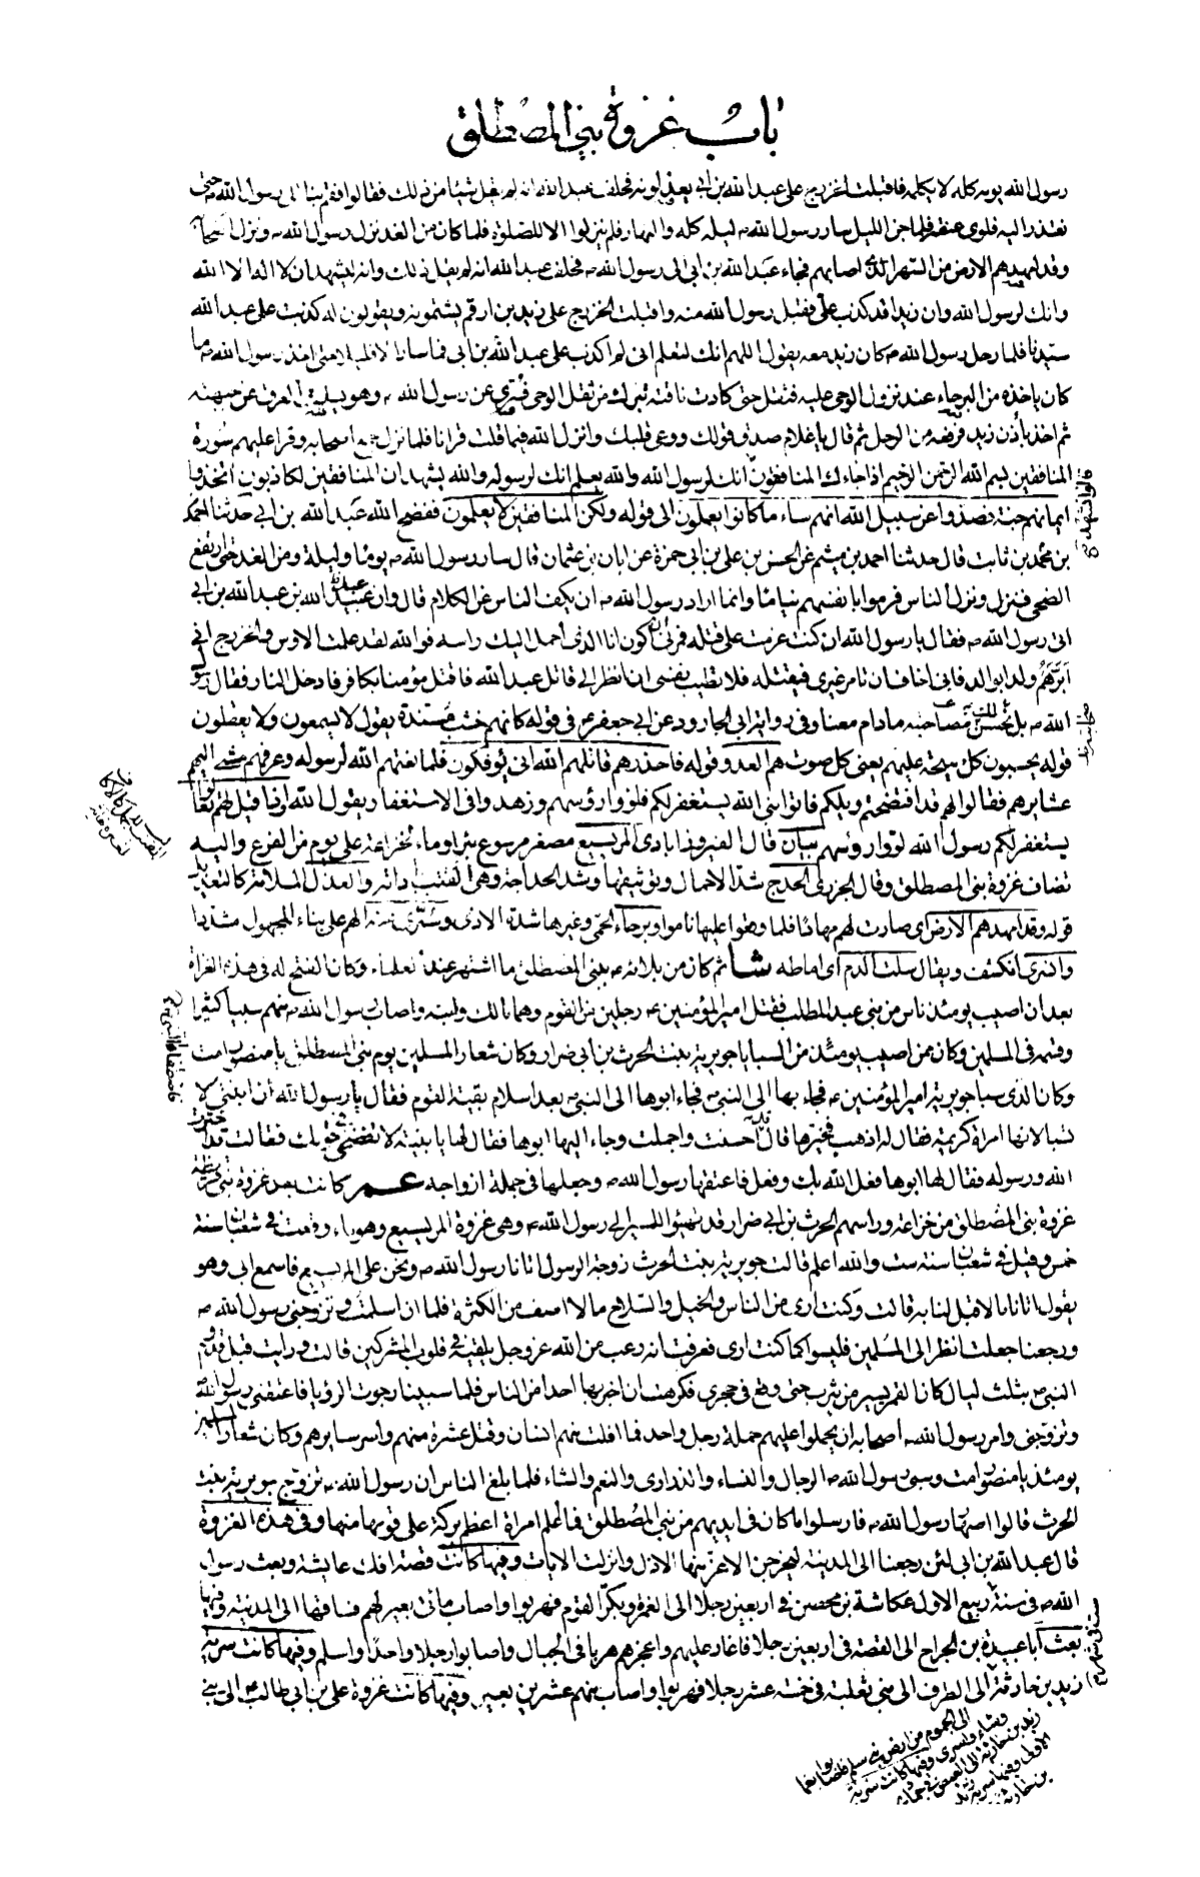 باب غزوة بني المصطلق
رسول الله يومه كله لا يكلمه فاقبلت الخزرج على عبد الله بن ابي يعذلونه فحلف عبد الله انه لم يقل شيئا من ذلك فقالوا فقم بنا الى رسول الله ص حتى
نعتذر اليه فلوى عنقه فلما جن الليل سار رسول الله ص ليله كله والنهار فلم ينزلوا الا للصلوة فلما كان من الغد نزل رسول الله ص ونزل اصحابه
وقد امهدهم الارض من السهر الذي اصابهم فجاء عبد الله بن ابي الى رسول الله ص فحلف عبد الله انه لم يقل ذلك وانه ليشهد ان لا اله الا الله
وانك لرسول الله وان زيدا قد كذب علي فقبل رسول الله منه واقبلت الخزرج على زيد بن ارقم يشتمونه ويقولون له كذبت على عبد الله
سيدنا فلما رحل رسول الله ص كان زيد معه يقول اللهم انك لتعلم اني لم اكذب على عبد الله بن ابي فما سار الا قليلا حتى اخذ رسول الله ص ما
كان ياخذه من البرحاء عند نزول الوحي عليه فثقل حتى كادت ناقته تبرك من ثقل الوحي فسري عن رسول الله ص وهو يسلت العرق عن جبهته
ثم اخذ باذن زيد فرفعه من الرحل ثم قال يا غلام صدق قولك ووعى قلبك وانزل الله فيما قلت قرانا فلما نزل جمع اصحابه وقرا عليهم سورة
المنافقين بسم الله الرحمن الرحيم اذا جاءك المنافقون انك لرسول الله والله يعلم انك لرسوله والله يشهد ان المنافقين لكاذبون اتخذوا
قالوا نشهد
ايمانهم جنة فصدوا عن سبيل الله انهم ساء ما كانوا يعملون الى قوله ولكن المنافقين لا يعلمون ففضح الله عبد الله بن ابي حدثنا محمد
بن محمد بن ثابت قال حدثنا احمد بن ميثم عن الحسن بن علي بن ابي حمزة عن ابان بن عثمان قال سار رسول الله ص يوما وليلة ومن الغد حتى ارتفع
الضحى فنزل ونزل الناس فرموا بانفسهم نياما وانما اراد رسول الله ص ان يكف الناس عن الكلام قال وان عبد الله بن عبد الله بن ابي
اتى رسول الله ص فقال يا رسول الله ان كنت عزمت على قتله فمرني اكون انا الذي احمل اليك راسه فوالله لقد علمت الاوس والخزرج اني
ابرهم ولدا بوالد فاني اخاف ان تامر غيري فيقتله فلا تطيب نفسي ان انظر الى قاتل عبد الله فاقتل مؤمنا بكافر فادخل النار فقال رسول
الله ص بل نحسن صحابته ما دام معنا وفي رواية ابي الجارود عن ابي جعفر ع في قوله كانهم خشب مسندة يقول لا يسمعون ولا يعقلون
قوله يحسبون كل صيحة عليهم يعني كل صوت هم العدو وقوله فاحذرهم قاتلهم الله انى يؤفكون فلما نعتهم الله لرسوله وعرفهم مشى اليهم
عشايرهم فقالوا لهم قد افتضحتم ويلكم فاتوا نبي الله يستغفر لكم فلووا رؤسهم وزهدوا في الاستغفار يقول الله واذا قيل لهم تعالوا
يستغفر لكم رسول الله لووا رؤسهم بيان قال الفيروزابادي المريسيع مصغر مرسوع بئر او ماء لخزاعة على يوم من الفرع واليه
تضاف غزوة بني المصطلق وقال الجزري الحدج شد الاحمال وتوثيقها وشد الحداجة وهي القتب باداته والعذل الملامة كالتعذيل
قوله وقد امهدهم الارض اي صارت لهم مهادا فلما وقعوا عليها ناموا وبرحاء الحمى وغيرها شدة الاذى وسرى عنه الهم على بناء المجهول مشددا
وانسرى انكشف ويقال سلت الدم اي اماطه شا ثم كان من بلائه ع ببني المصطلق ما اشتهر عند العلماء وكان الفتح له في هذه الغزاة
بعد ان اصيب يومئذ ناس من بني عبد المطلب فقتل امير المؤمنين ع رجلين من القوم وهما مالك وابنه واصاب رسول الله ص منهم سبيا كثيرا
وقسمه في المسلمين وكان ممن اصيب يومئذ من السبايا جويرية بنت الحرث بن ابي ضرار وكان شعار المسلمين يوم بني المصطلق يا منصور امت
وكان الذي سبا جويرية امير المؤمنين ع فجاء بها الى النبي ص فجاء ابوها الى النبي ص بعد اسلام بقية القوم فقال يا رسول الله ان ابنتي لا
فاصطفاها النبي ص
تسبا لانها امراة كريمة فقال له اذهب فخيرها قال قد احسنت واجملت وجاء اليها ابوها فقال لها يا بنية لا تفضحي قومك فقالت قد اخترت
الله ورسوله فقال لها ابوها فعل الله بك وفعل فاعتقها رسول الله ص وجعلها في جملة ازواجه عم كانت بعد غزوة بني قريظة
غزوة بني المصطلق من خزاعة وراسهم الحرث بن ابي ضرار قد تهيئوا للمسير الى رسول الله ص وهي غزوة المريسيع وهو ماء وقعت في شعبان سنة
خمس وقيل في شعبان سنة ست والله اعلم قالت جويرية بنت الحرث زوجة الرسول اتانا رسول الله ص ونحن على المريسيع فاسمع ابي وهو
يقول اتانا ما لا قبل لنا به قالت وكنت ارى من الناس والخيل والسلاح ما لا اصف من الكثرة فلما ان اسلمت وتزوجني رسول الله ص
ورجعنا جعلت انظر الى المسلمين فليسوا كما كنت ارى فعرفت انه رعب من الله عز وجل يلقيه في قلوب المشركين قالت ورايت قبل قدوم
النبي ص بثلث ليال كان القمر يسير من يثرب حتى وقع في حجري فكرهت ان اخبر بها احدا من الناس فلما سبينا رجوت الرؤيا فاعتقني رسول الله
وتزوجني وامر رسول الله ص اصحابه ان يحملوا عليهم حملة رجل واحد فما افلت منهم انسان وقتل عشرة منهم واسر سايرهم وكان شعار المسلمين
يومئذ يا منصور امت وسبى رسول الله ص الرجال والنساء والذراري والنعم والشاء فلما بلغ الناس ان رسول الله ص تزوج جويرية بنت
الحرث قالوا اصهار رسول الله ص فارسلوا ما كان في ايديهم من بني المصطلق فما اعلم امراة اعظم بركة على قومها منها وفي هذه الغزوة
قال عبد الله بن ابي لئن رجعنا الى المدينة ليخرجن الاعز منها الاذل وانزلت الايات وفيها كانت قصة افك عايشة وبعث رسول
الله ص في سنة ربيع الاول عكاشة بن محصن في اربعين رجلا الى الغمرة وبكر القوم فهربوا واصاب مائتي بعير لهم فساقها الى المدينة وفيها
ست في شهر
بعث ابا عبيدة بن الجراح الى القصة في اربعين رجلا فاغار عليهم واعجزهم هربا في الجبال واصابوا رجلا واحدا واسلم وفيها كانت سرية
زيد بن حارثة الى الطرف الى بني ثعلبة في خمسة عشر رجلا فهربوا واصاب منهم عشرين بعيرا وفيها كانت غزوة علي بن ابي طالب ع الى بني
زيد بن حارثة الى الجموم من ارض بني سليم فاصابوا نعما
وشاء واسرى وفيها كانت سرية
زيد بن حارثة الى العيص في جمادى
الاولى وفيها سرية زيد
بن حارثة